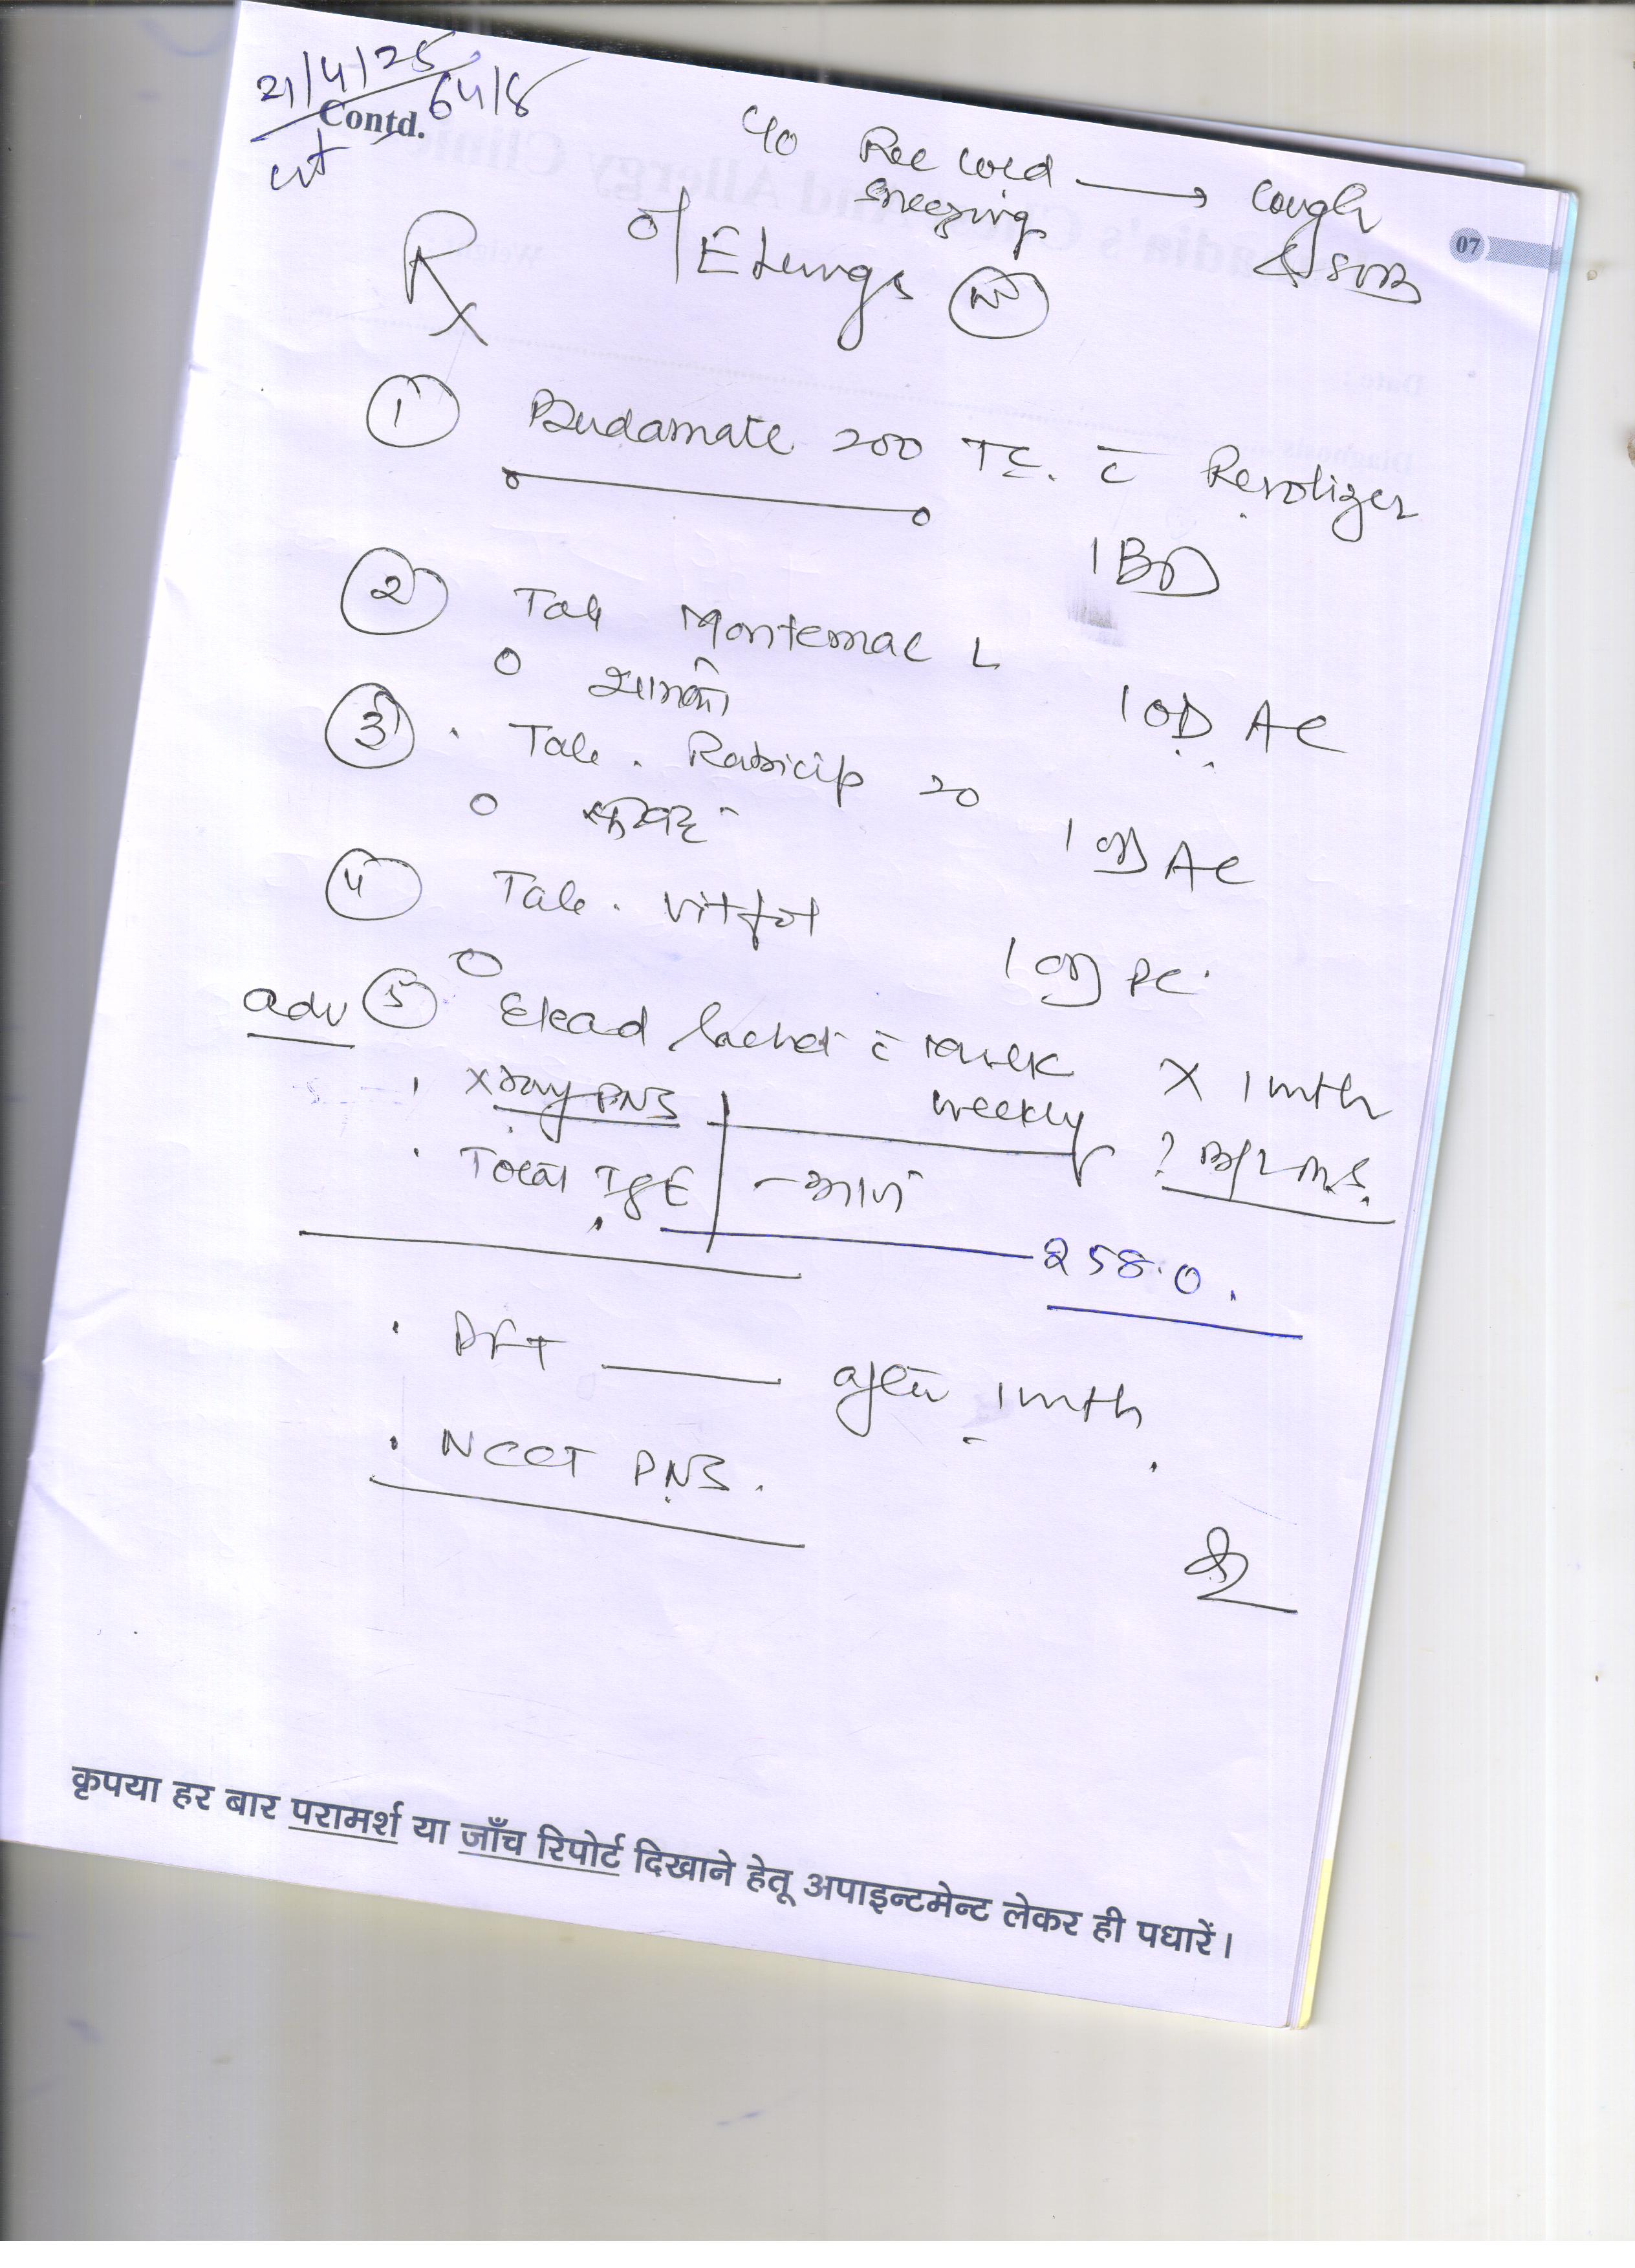 21/4/25
Contd. 64/8
wt
c/o Rec cold → cough
sneezing & SOB
07
o/E Lungs N
Rx
① Budamate 200 TC. c̄ Revolizer
1 BD
② Tab Montemac L
1 OD AC
○ शाम को
③ Tab. Rabicip 20
1 OD AC
○ सुबह
④ Tab. Vitfol
1 OD PC.
○
adv ⑤ Elcad Sachet c̄ milk x 1 mth
weekly
. X Ray PNS
. Total IgE - आज
258.0.
. PFT — after 1 mth.
. NCCT PNS.
कृपया हर बार परामर्श या जाँच रिपोर्ट दिखाने हेतू अपाइन्टमेन्ट लेकर ही पधारें।